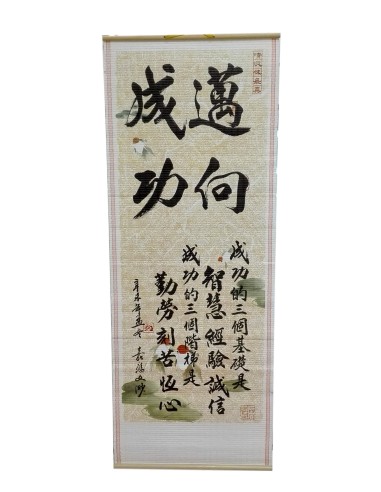 邁向
成功
成功的三個基礎是
智慧經驗誠信
成功的三個階梯是
勤勞刻苦恆心